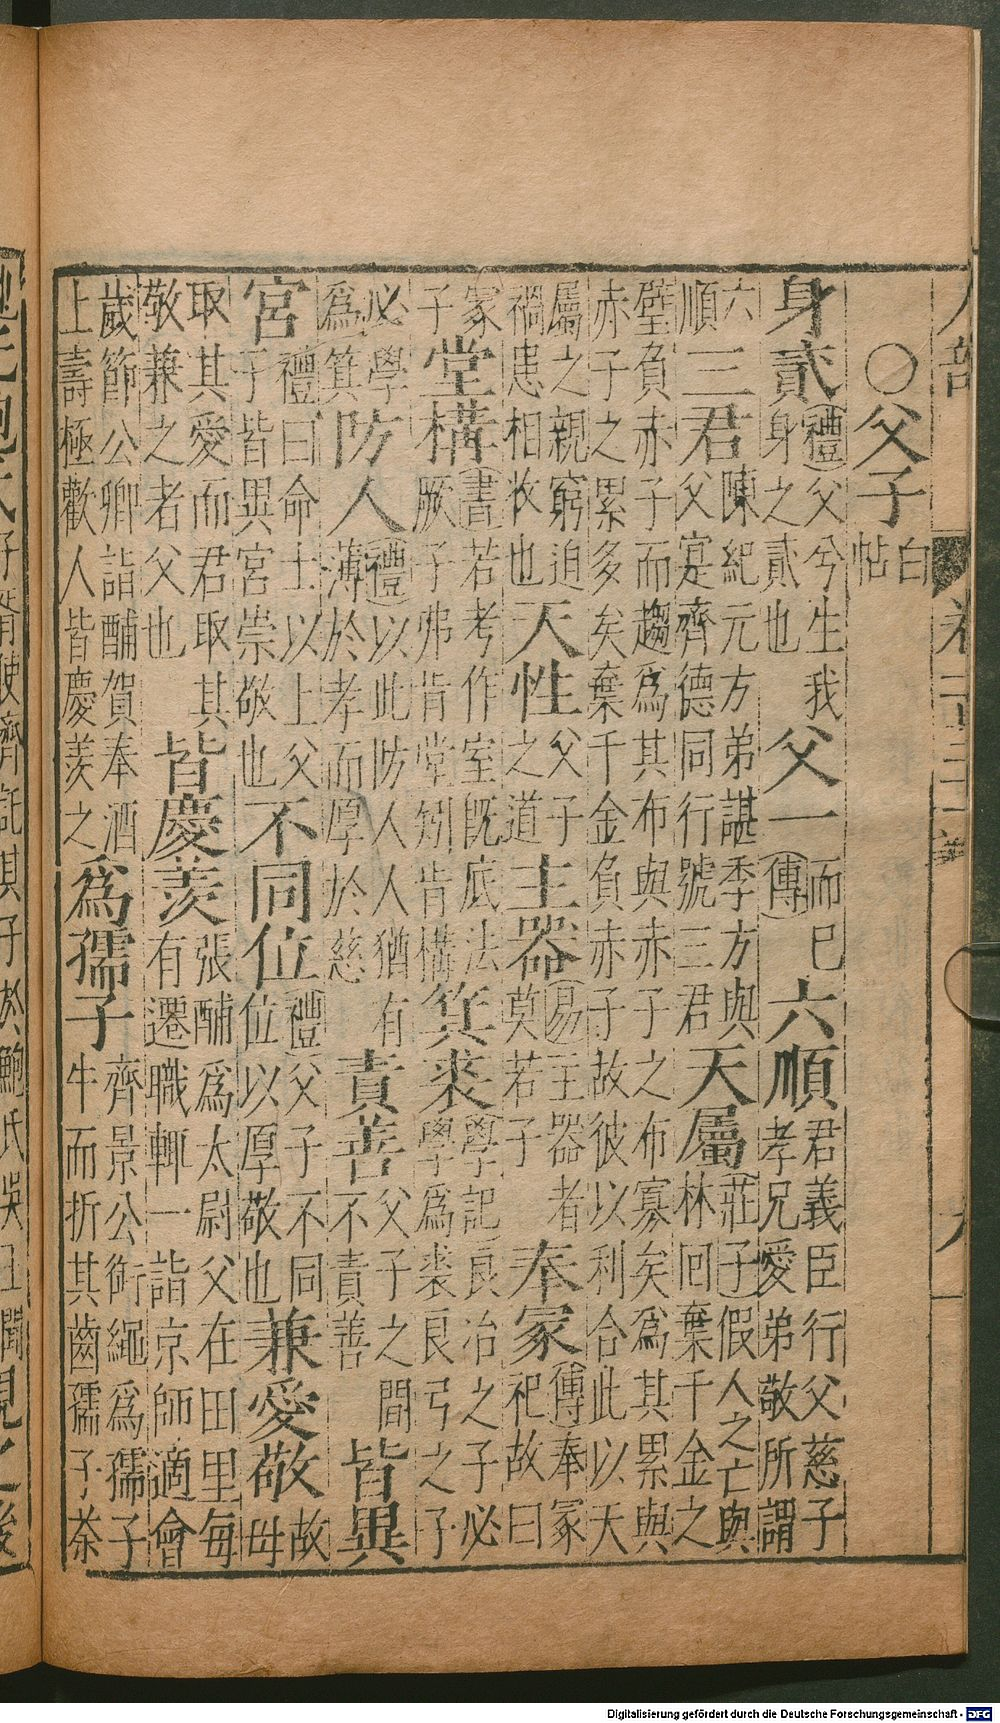 ○父子白帖
身貳(禮)父兮生我身之貳也父一(傳)而已六順君義臣行父慈子孝兄愛弟敬所謂
六順三君陳紀元方弟諶季方與父寔齊德同行號三君天屬(莊子)假人之亡與林回棄千金之
璧負赤子而趨爲其布與赤子之布寡矣爲其累與赤子之累多矣棄千金負赤子故彼以利合此以天
屬之親窮迫禍患相收也天性父子之道主器(易)主器者莫若子奉冢(傳)奉冢祀故曰
冢子堂構(書)若考作室既底法厥子弗肯堂矧肯構箕裘(學記)良冶之子必學爲裘良弓之子
必學爲箕防人(禮)以此防人人猶有薄於孝而厚於慈責善父子之間不責善皆異
宮(禮)曰命士以上父子皆異宮崇敬也不同位(禮)父子不同位以厚敬也兼愛敬故母
取其愛而君取其敬兼之者父也皆慶羨張酺爲太尉父在田里每有遷職輒一詣京師適會
歲節公卿詣酺賀奉酒上壽極歡人皆慶羨之爲孺子齊景公銜繩爲孺子牛而折其齒孺子荼
子胥使齊託其子於鮑氏吳王聞
Digitalisierung gefördert durch die Deutsche Forschungsgemeinschaft - DFG